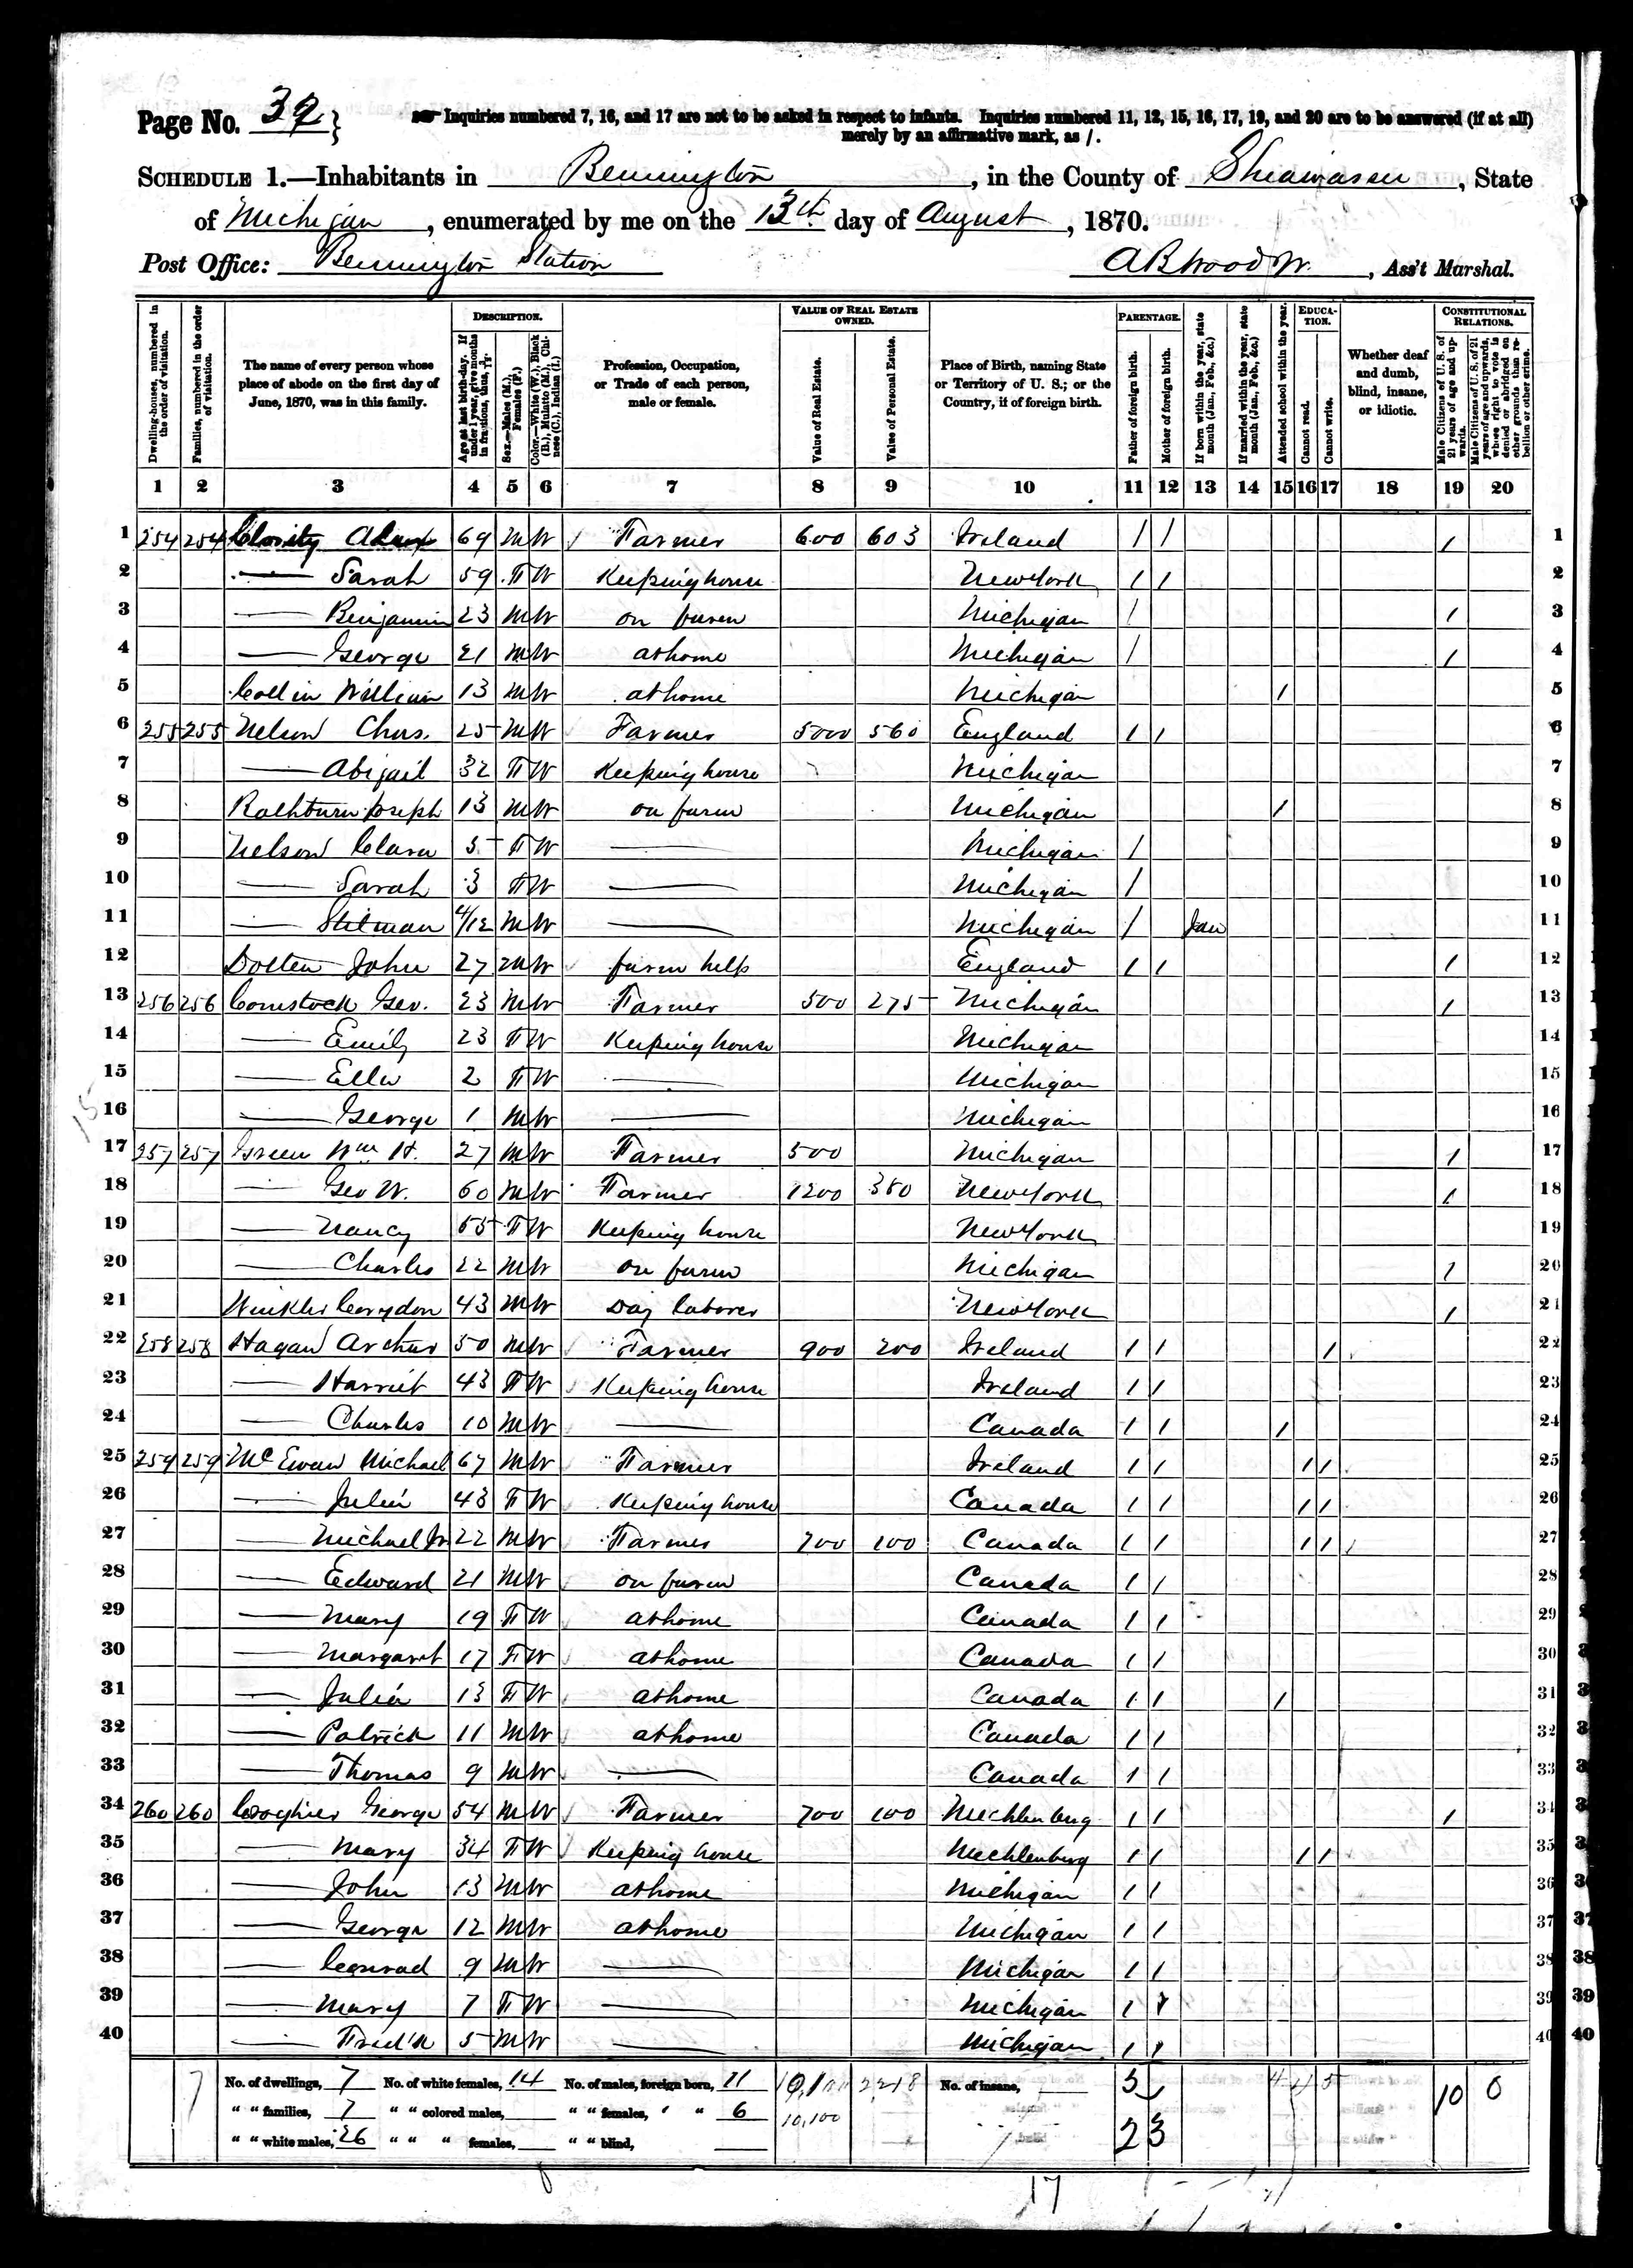 Page No. 32}
Inquiries numbered 7, 16, and 17 are not to be asked in respect to infants. Inquiries numbered 11, 12, 15, 16, 17, 19, and 20 are to be answered (if at all)
merely by an affirmative mark, as /.
SCHEDULE 1.—Inhabitants in Bennington, in the County of Shiawassee, State
of Michigan, enumerated by me on the 13th day of August, 1870.
Post Office: Bennington Station
Ass't Marshal.
Dwelling-houses, numbered in the order of visitation.
Families, numbered in the order of visitation.
The name of every person whose place of abode on the first day of June, 1870, was in this family.
DESCRIPTION.
Age at last birth-day. If under 1 year, give months in fractions, thus, 3/12.
Sex.—Males (M.), Females (F.)
Color.—White (W.), Black (B.), Mulatto (M.), Chinese (C.), Indian (I.)
Profession, Occupation, or Trade of each person, male or female.
VALUE OF REAL ESTATE OWNED.
Value of Real Estate.
Value of Personal Estate.
Place of Birth, naming State or Territory of U. S.; or the Country, if of foreign birth.
PARENTAGE.
Father of foreign birth.
Mother of foreign birth.
If born within the year, state month (Jan., Feb., &c.)
If married within the year, state month (Jan., Feb., &c.)
Attended school within the year.
EDUCATION.
Cannot read.
Cannot write.
Whether deaf and dumb, blind, insane, or idiotic.
CONSTITUTIONAL RELATIONS.
Male Citizens of U. S. of 21 years of age and upwards.
Male Citizens of U. S. of 21 years of age and upwards, whose right to vote is denied or abridged on other grounds than rebellion or other crime.
1 2 3 4 5 6 7 8 9 10 11 12 13 14 15 16 17 18 19 20
1 254 254 69 M W Farmer 600 603 Ireland / / / 1
2 — Sarah 59 F W Keeping house New York / / 2
3 — Benjamin 23 M W on farm Michigan / / 3
4 — George 21 M W at home Michigan / / 4
5 Collin William 13 M W at home Michigan / 5
6 255 255 Nelson Chas. 25 M W Farmer 5000 560 England / / 6
7 — Abigail 32 F W Keeping house Michigan 7
8 Rathburn Joseph 13 M W on farm Michigan / 8
9 Nelson Clara 5 F W — Michigan / 9
10 — Sarah 3 F W — Michigan / 10
11 — Stilman 4/12 M W — Michigan / Jan 11
12 Dolten John 27 M W farm help England / / / 12
13 256 256 Comstock Geo. 23 M W Farmer 500 275 Michigan / 13
14 — Emily 23 F W Keeping house Michigan 14
15 — Ella 2 F W — Michigan 15
16 — George 1 M W — Michigan 16
17 257 257 Green Wm H. 27 M W Farmer 500 Michigan / 17
18 — Geo W. 60 M W Farmer 1200 380 New York / 18
19 — Nancy 55 F W Keeping house New York 19
20 — Charles 22 M W on farm Michigan / 20
21 Winkler Corydon 43 M W Day laborer New York / 21
22 258 258 Hagan Arthur 50 M W Farmer 900 200 Ireland / / / 22
23 — Harriet 43 F W Keeping house Ireland / / 23
24 — Charles 10 M W — Canada / / / 24
25 259 259 McEwen Michael 67 M W Farmer Ireland / / / / 25
26 — Julia 43 F W Keeping house Canada / / / / 26
27 — Michael Jr 22 M W Farmer 700 100 Canada / / / / 27
28 — Edward 21 M W on farm Canada / / 28
29 — Mary 19 F W at home Canada / / 29
30 — Margaret 17 F W at home Canada / / 30
31 — Julia 13 F W at home Canada / / / 31
32 — Patrick 11 M W at home Canada / / 32
33 — Thomas 9 M W — Canada / / 33
34 260 260 George 54 M W Farmer 700 100 Mechlenburg / / / 34
35 — Mary 34 F W Keeping house Mechlenburg / / / / 35
36 — John 13 M W at home Michigan / / 36
37 — George 12 M W at home Michigan / / 37
38 — Conrad 9 M W — Michigan / / 38
39 — Mary 7 F W — Michigan / / 39
40 — Fred'k 5 M W — Michigan / / 40
No. of dwellings, 7 No. of white females, 14 No. of males, foreign born, 11 2218 No. of insane, 4 4 5 10 0
" " families, 7 " " colored males, " " females, " " 6 10,100
" " white males, 26 " " " females, " " blind, 23
17